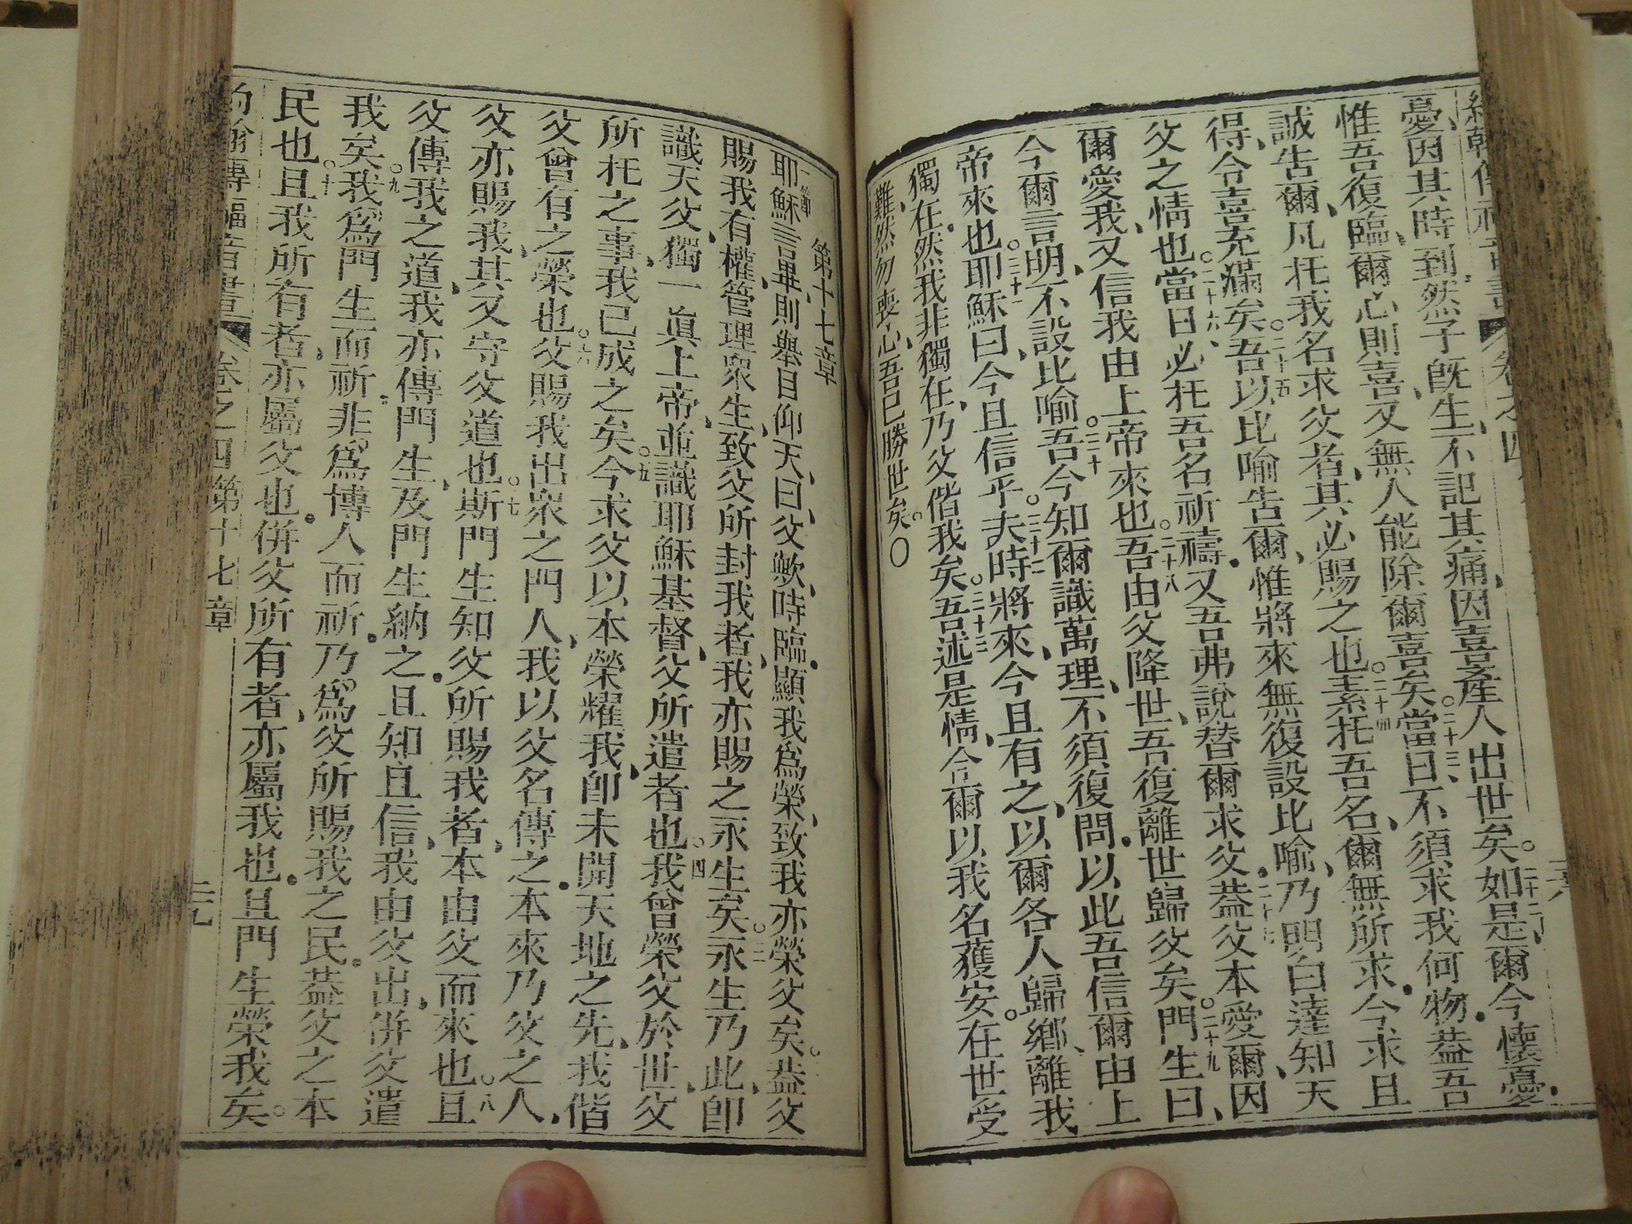 憂、因其時到、然子旣生、不記其痛、因喜產人出世矣。二十二如是爾今懷憂、
惟吾復臨、爾心則喜、又無人能除爾喜矣。二十三當日不須求我何物、蓋吾
誠告爾、凡托我名求父者、其必賜之也。二十四素托吾名、爾無所求、今求且
得、令喜充滿矣。二十五吾以比喻告爾、惟將來無復設比喻、乃明白達知天
父之情也。二十六當日必托吾名祈禱、又吾弗說替爾求父、二十七蓋父本愛爾、因
爾愛我、又信我由上帝來也。二十八吾由父降世、吾復離世歸父矣。二十九門生曰、
今爾言明、不設比喻。三十吾今知爾識萬理、不須復問、以此吾信爾由上
帝來也。三十一耶穌曰、今且信乎。三十二夫時將來、今且有之、以爾各人歸鄉、離我
獨在、然我非獨在、乃父偕我矣。三十三吾述是情、令爾以我名獲安。在世受
難、然勿喪心、吾已勝世矣。〇
第十七章
一節耶穌言畢、則舉目仰天、曰、父歟、時臨、顯我爲榮、致我亦榮父矣。二蓋父
賜我有權、管理衆生、致父所封我者、我亦賜之永生矣。三永生乃此、卽
識天父、獨一眞上帝、並識耶穌基督、父所遣者也。四我曾榮父於世、父
所托之事、我已成之矣。五今求父以本榮耀我、卽未開天地之先、我偕
父曾有之榮也。六父賜我出衆之門人、我以父名傳之、本來乃父之人、
父亦賜我、其又守父道也。七斯門生知父所賜我者、本由父而來也。八且
父傳我之道、我亦傳門生、及門生納之、且知且信、我由父出、併父遣
我矣。九我爲門生而祈、非爲博人而祈、乃爲父所賜我之民、蓋父之本
民也。十且我所有者、亦屬父也、併父所有者、亦屬我也、且門生榮我矣。
約翰傳福音書 卷之四 第十七章 三九